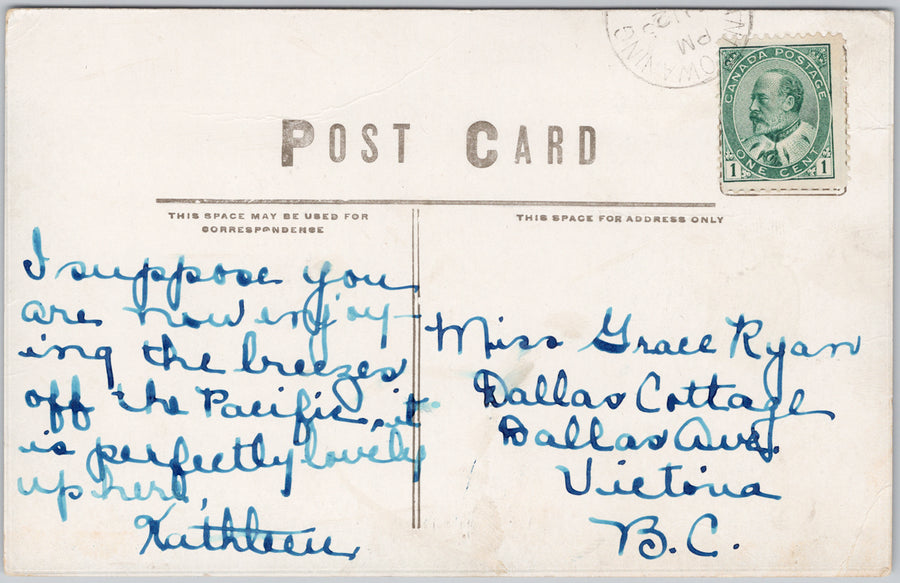 PM
POST CARD
CANADA POSTAGE
ONE CENT
1 1
THIS SPACE MAY BE USED FOR
CORRESPONDENCE
THIS SPACE FOR ADDRESS ONLY
I suppose you
are now enjoy-
ing the breezes
off the Pacific, it
is perfectly lovely
up here,
Kathleen
Miss Grace Ryan
Dallas Cottage
Dallas Ave.
Victoria
B.C.